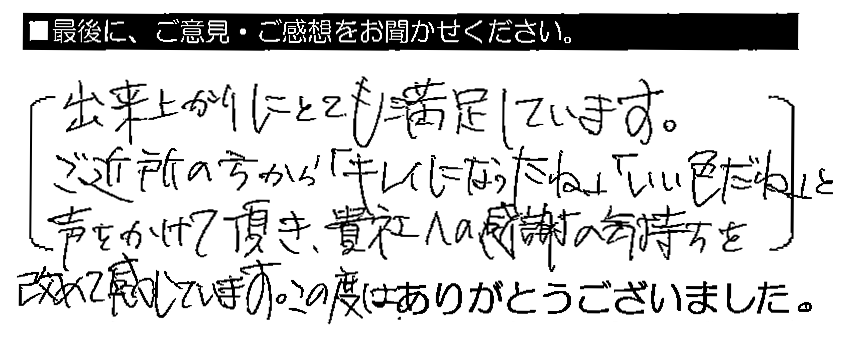 ■最後に、ご意見・ご感想をお聞かせください。
出来上がりにとても満足しています。
ご近所の方から「キレイになったね」「いい色だね」と
声をかけて頂き、貴社への感謝の気持ちを
改めて感じています。この度はありがとうございました。